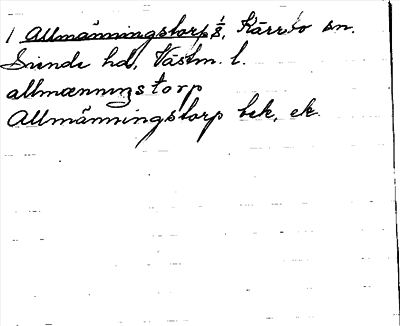 1 Allmänningstorp 1/8, Kärrbo sn.
Siende hd, Västm. l.
allmænningstorp
Allmänningstorp bek. ek.